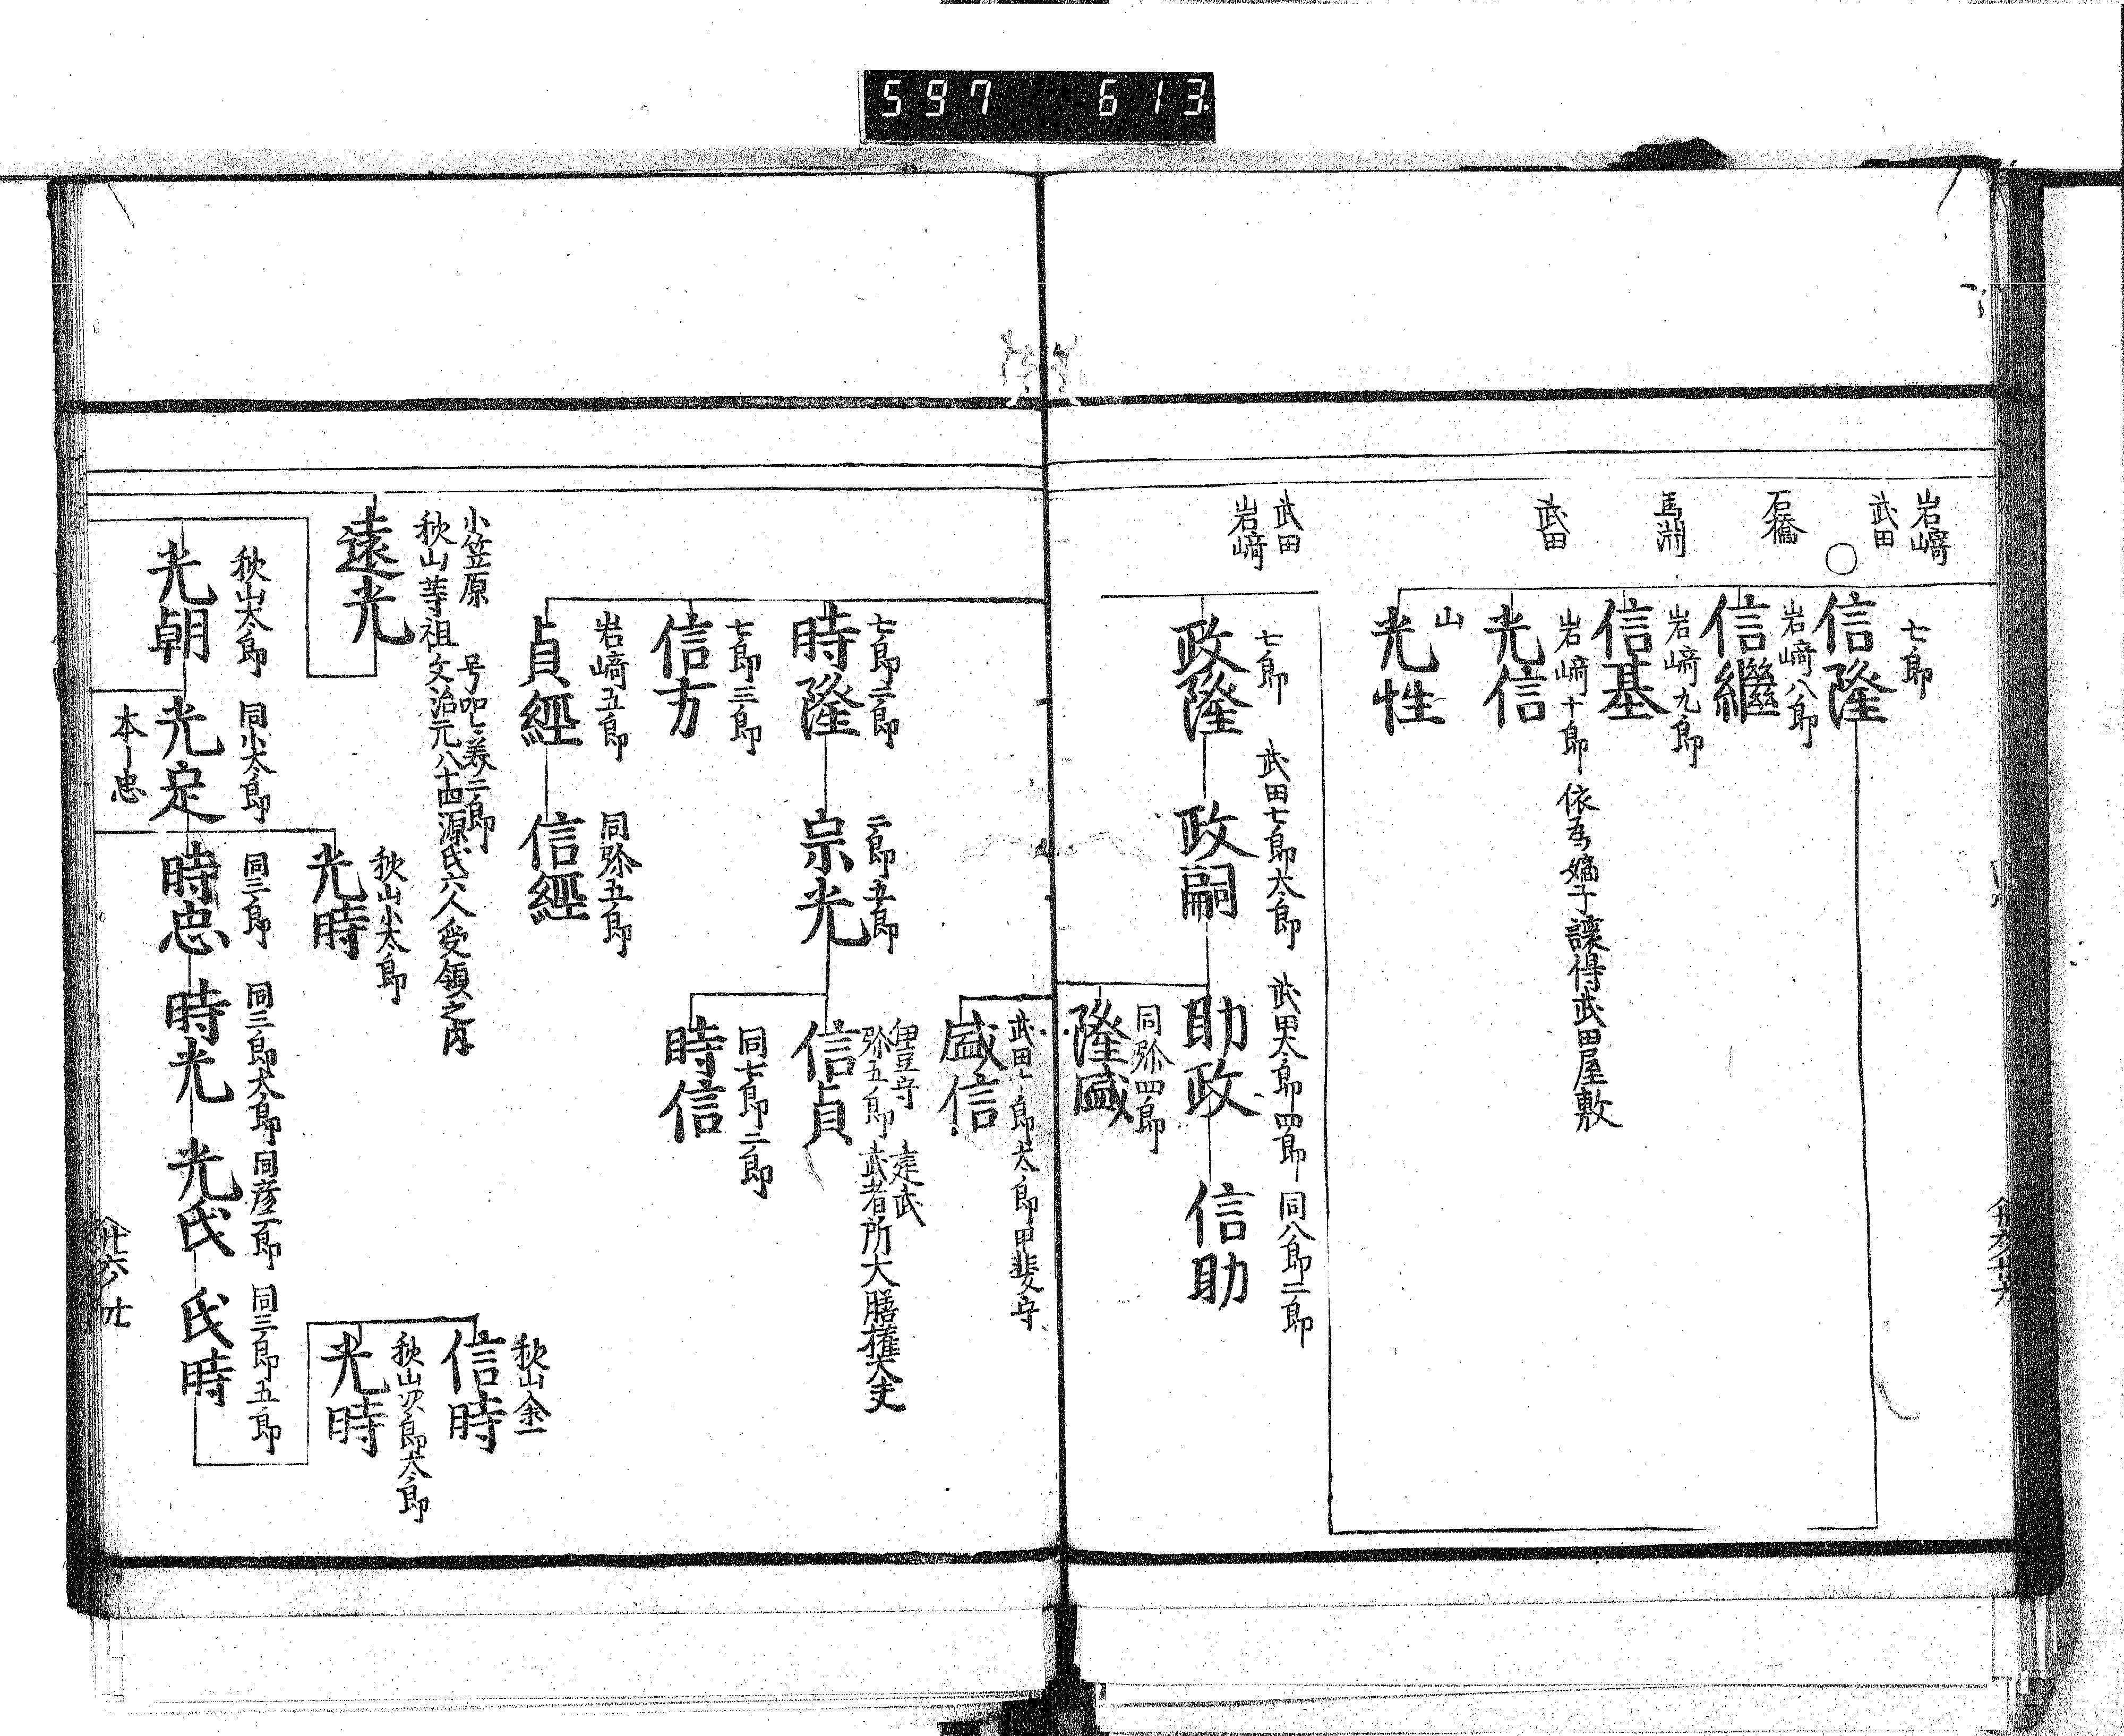 597 613.
岩﨑
武田
七郎
信隆
石橋
岩﨑八郎
信繼
馬淵
岩﨑九郎
信基
武田
岩﨑十郎 依為嫡子讓得武田屋敷
光信
山
光性
武田
岩﨑
七郎
政隆
武田七郎太郎
政嗣
武田太郎四郎
助政
同八郎二郎
信助
同弥四郎
隆盛
武田七郎太郎甲斐守
盛信
七郎二郎
時隆
二郎五郎
宗光
伊豆守 建武
弥五郎 武者所大膳權大夫
信貞
同七郎二郎
時信
七郎三郎
信方
岩﨑五郎
貞經
同弥五郎
信經
小笠原
秋山等祖文治元八十四源氏六人受領之内
遠光
秋山太郎
光朝
同小太郎
光定
本ー忠
秋山小太郎
光時
同三郎
時忠
同三郎太郎
時光
同彦二郎
光氏
同三郎五郎
氏時
秋山余一
信時
秋山次郎太郎
光時